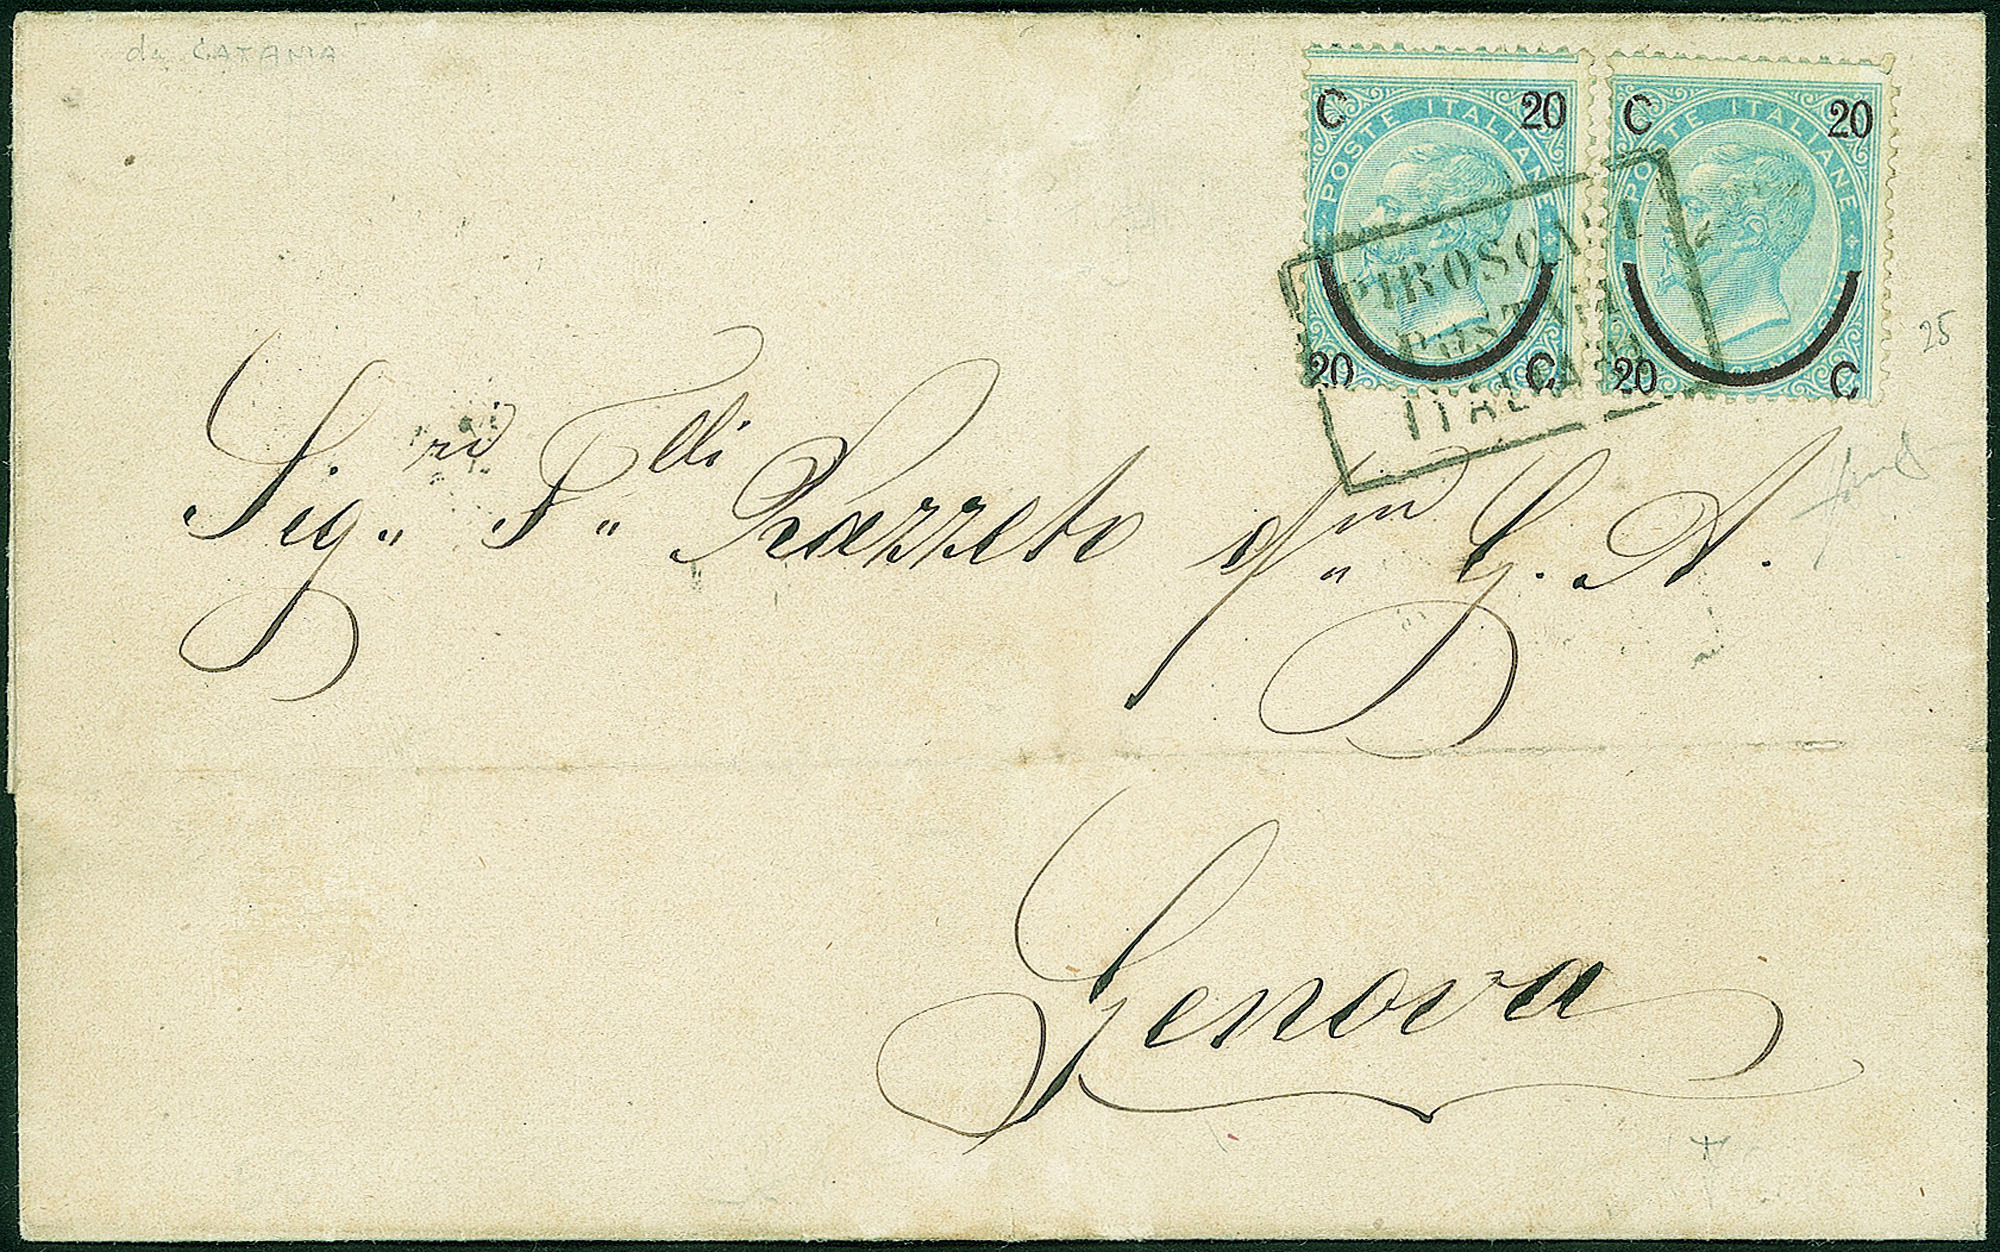 da CATANIA
C 20
POSTE ITALIANE
20 C
C 20
POSTE ITALIANE
20 C
PIROSCAFI
POSTALI
ITALIANI
25
Sig.ri F.lli Razzeto q.m G. A.
Genova